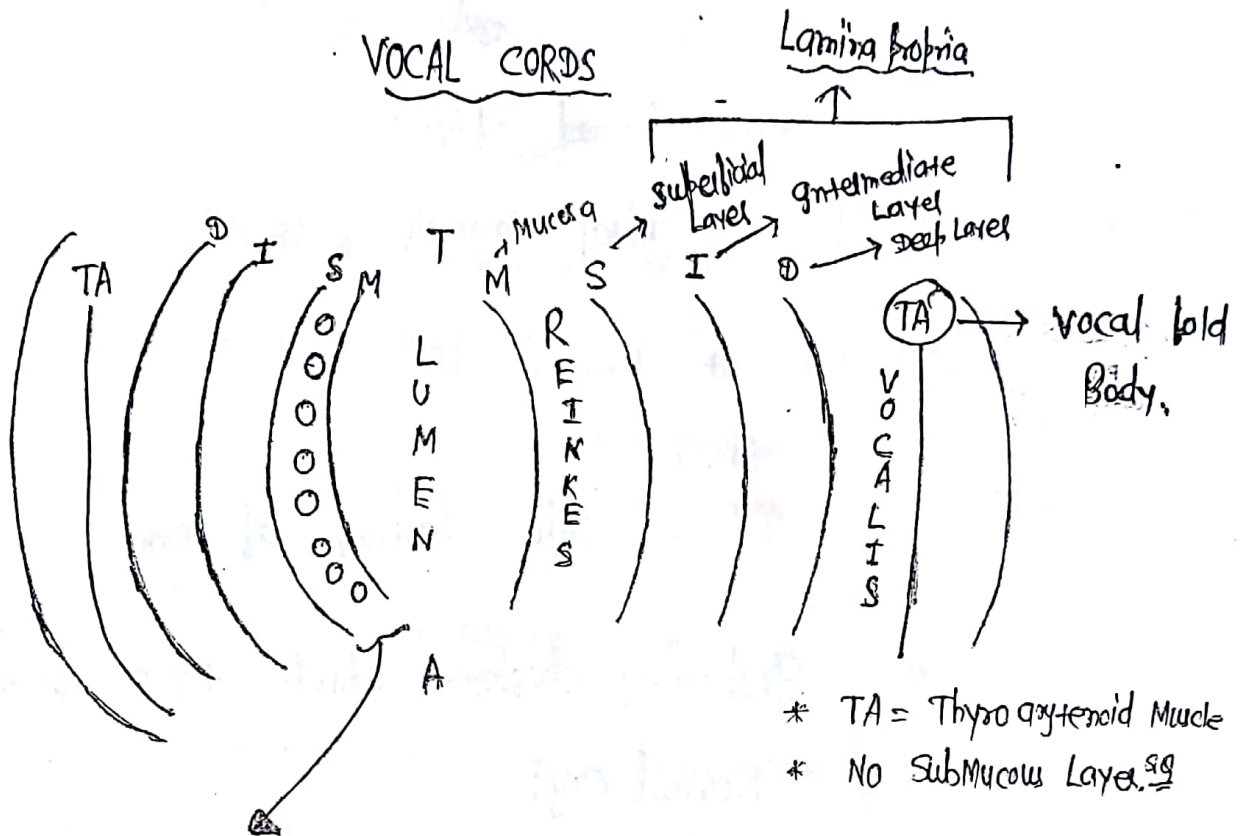 VOCAL CORDS
Lamina propria
Superficial Layer
Intermediate Layer
Deep Layer
Mucosa
TA D I S M T M S I D TA
Vocal fold Body.
LUMEN
REINKES
VOCALIS
A
* TA = Thyroarytenoid Muscle
* No SubMucous Layer.